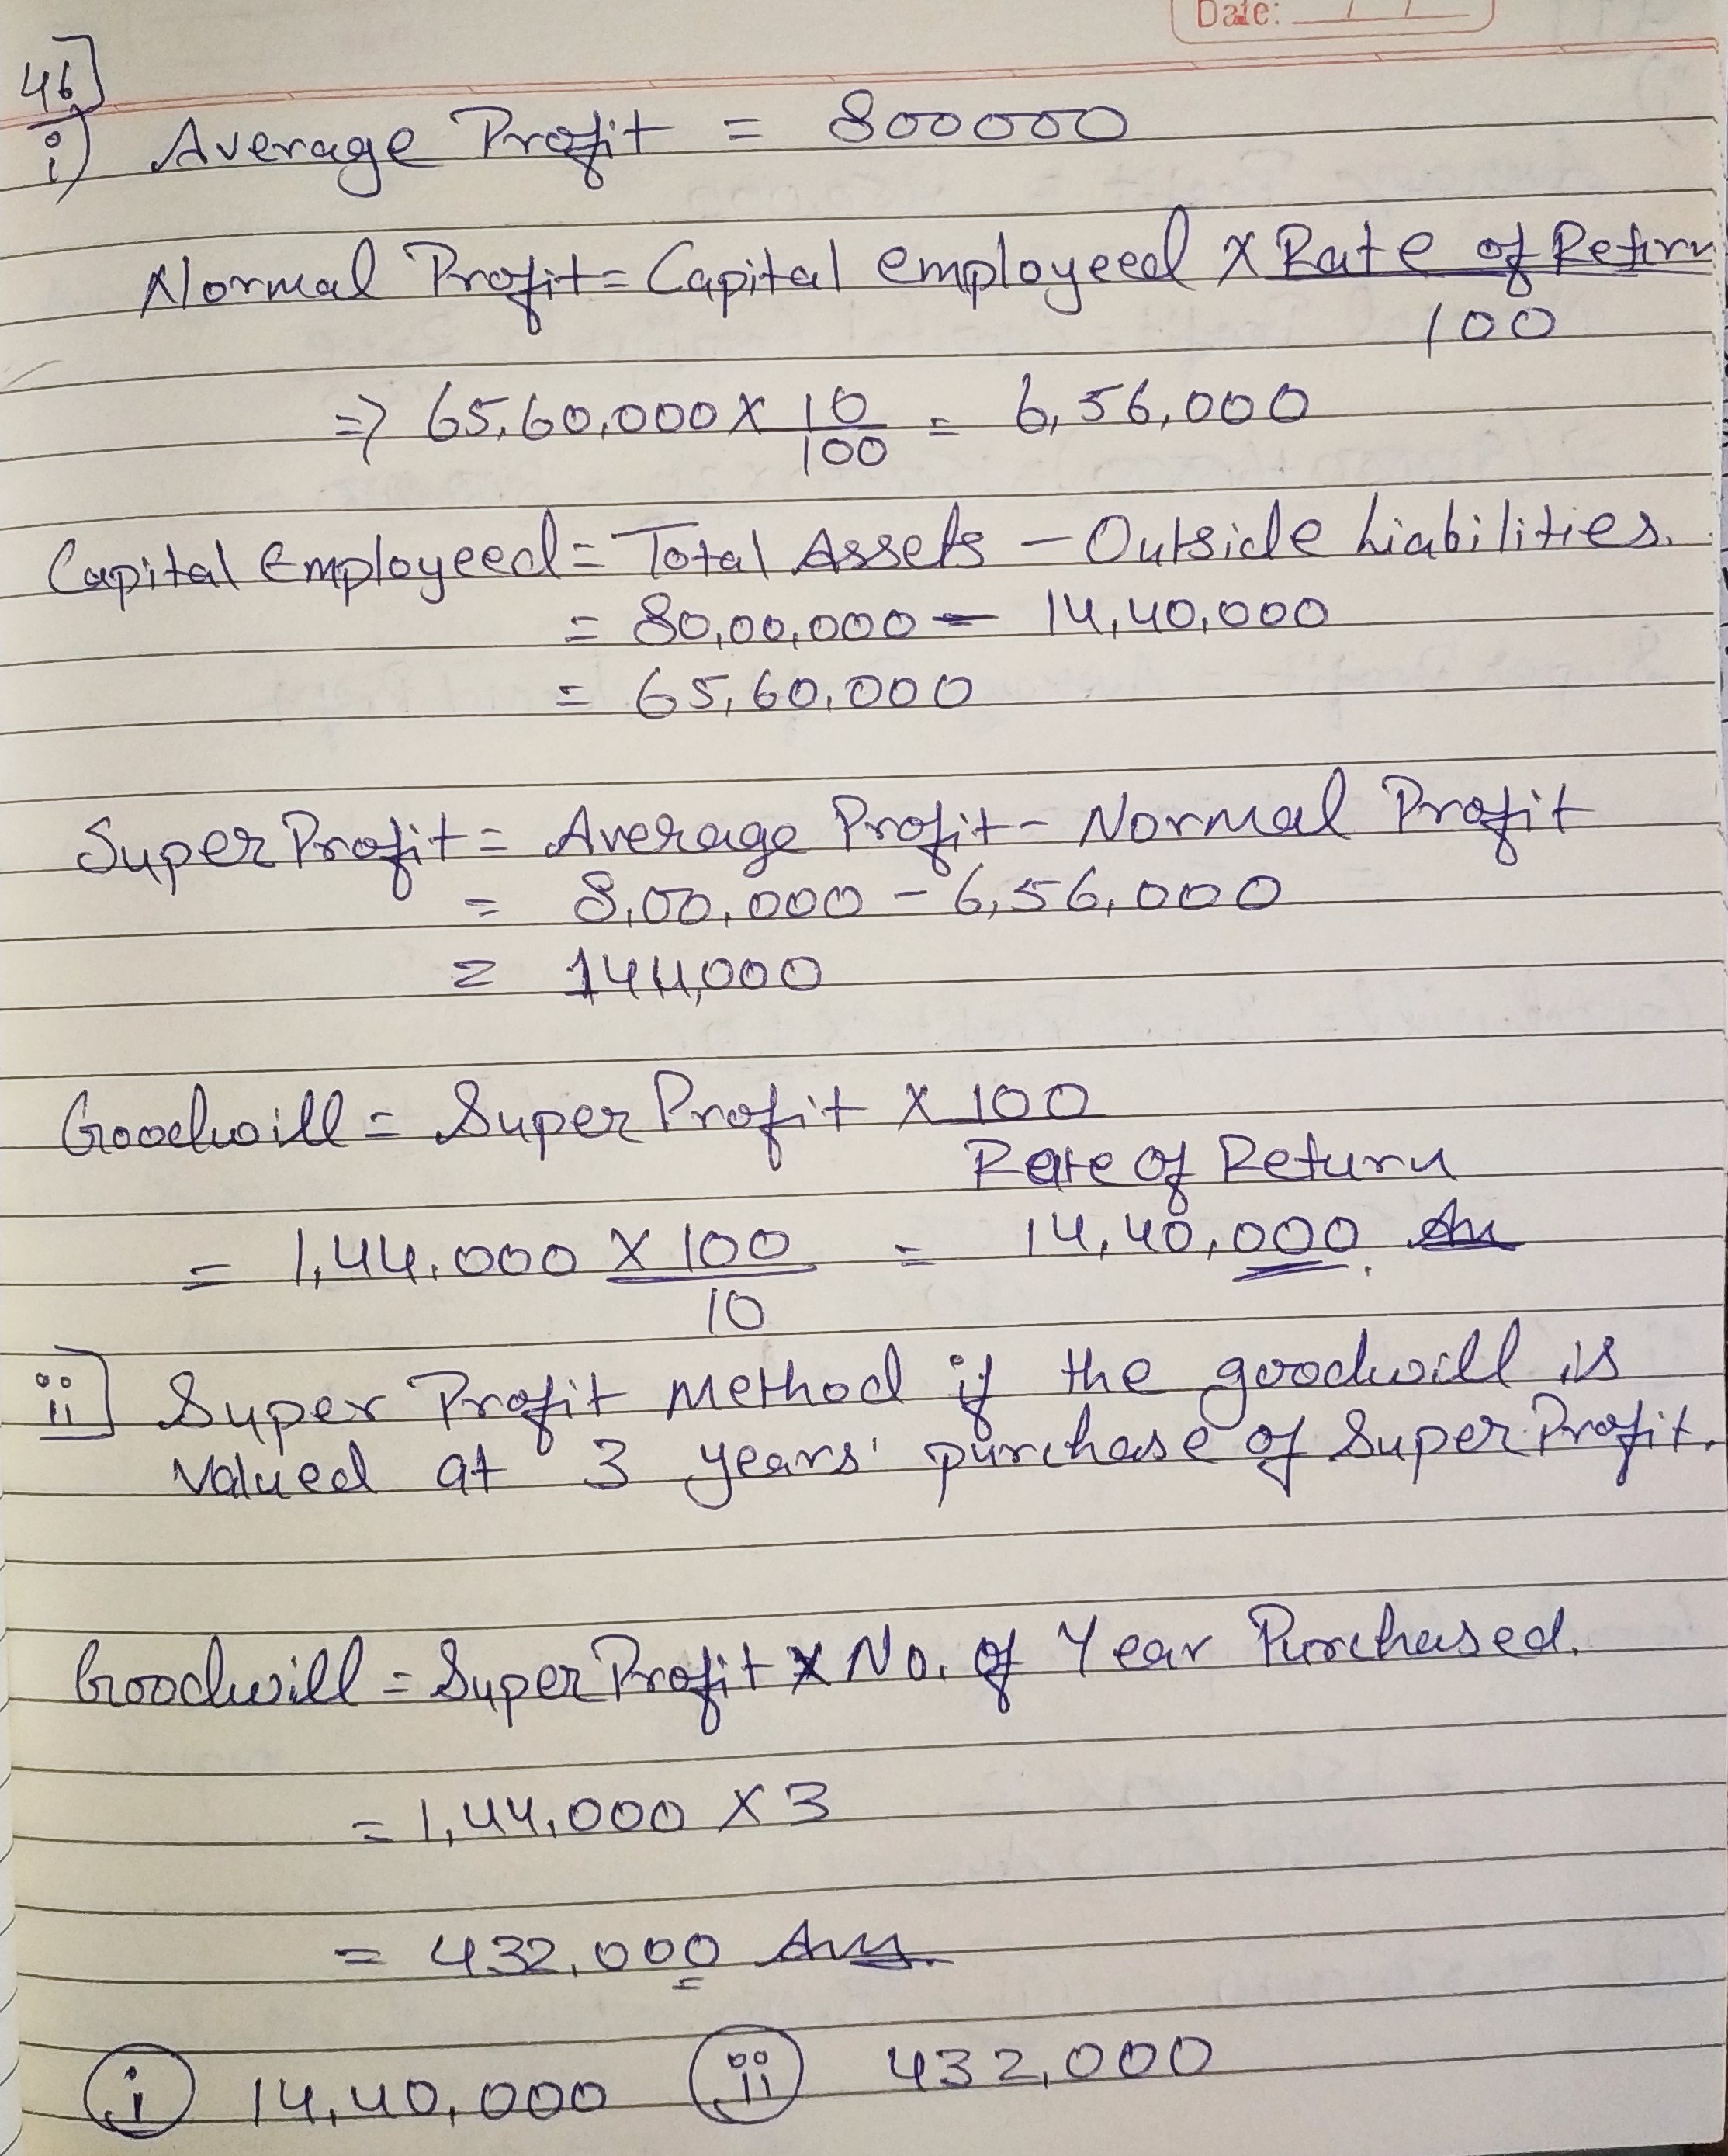 Date: / /
46]
i) Average Profit = 800000
Normal Profit = Capital employeed X Rate of Return
100
⇒ 65,60,000 X 10 = 6,56,000
100
Capital Employeed = Total Assets - Outside Liabilities.
= 80,00,000 - 14,40,000
= 65,60,000
Super Profit = Average Profit - Normal Profit
= 8,00,000 - 6,56,000
= 144,000
Goodwill = Super Profit X 100
Rate of Return
= 1,44,000 X 100 = 14,40,000. An
10
ii] Super Profit Method if the goodwill is
Valued at 3 years' purchase of Super Profit.
Goodwill = Super Profit X No. of Year Purchased.
= 1,44,000 X 3
= 432,000 Ans.
i 14,40,000 ii 432,000